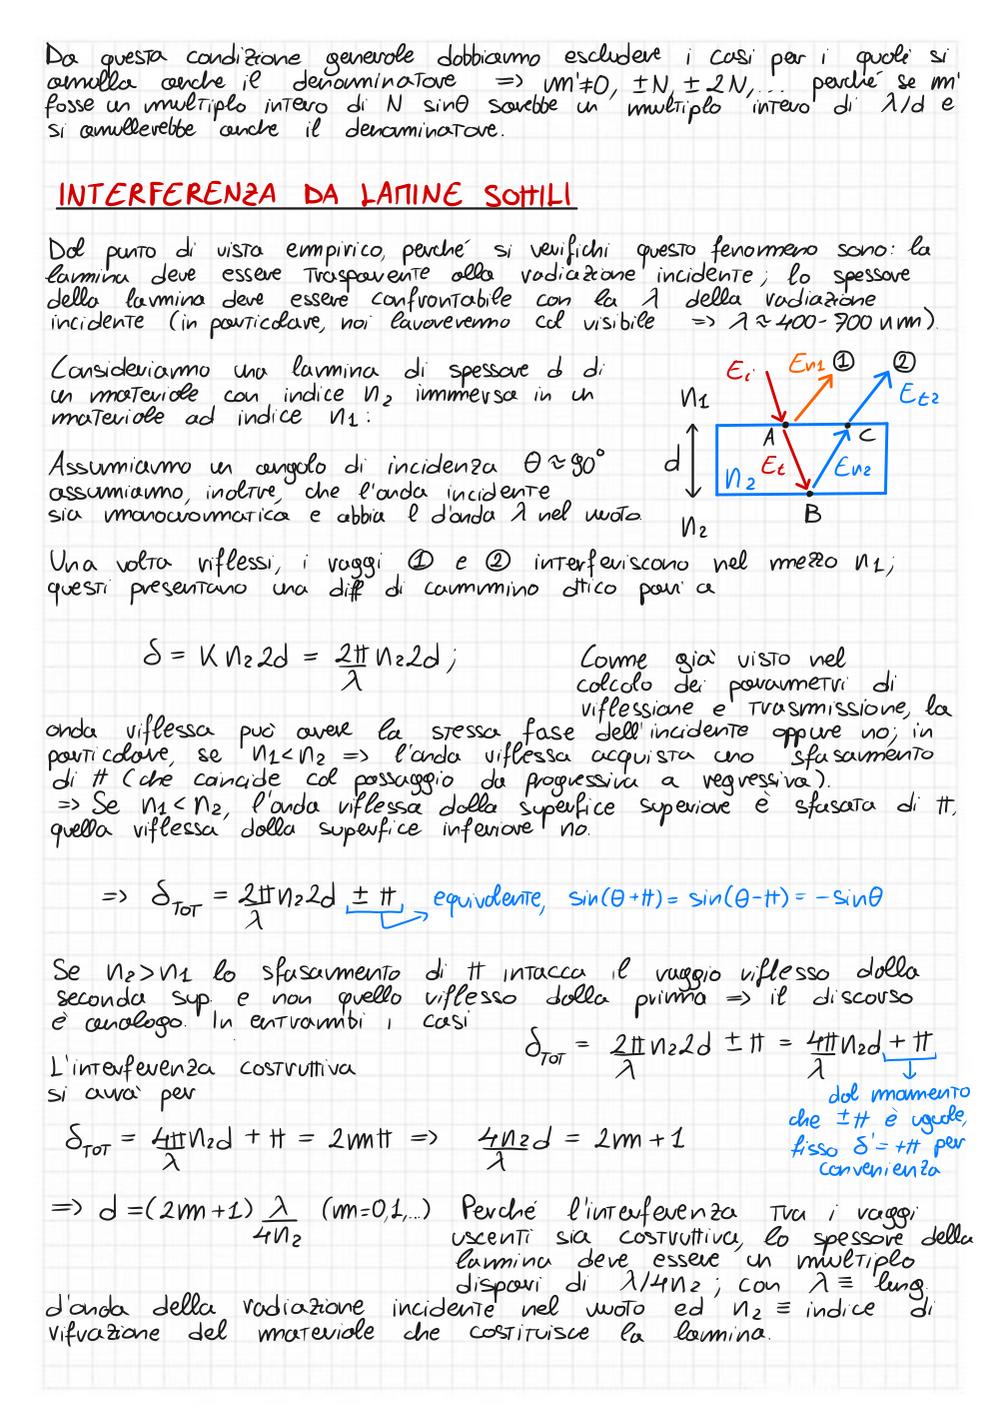 Da questa condizione generale dobbiamo escludere i casi per i quali si
annulla anche il denominatore => m'≠0, ±N, ±2N,... perché se m'
fosse un multiplo intero di N sinθ sarebbe un multiplo intero di λ/d e
si annullerebbe anche il denominatore.
INTERFERENZA DA LAMINE SOTTILI
Dal punto di vista empirico, perché si verifichi questo fenomeno sono: la
lamina deve essere trasparente alla radiazione incidente; lo spessore
della lamina deve essere confrontabile con la λ della radiazione
incidente (in particolare, noi lavoreremo col visibile => λ≈400-700 nm).
Consideriamo una lamina di spessore d di
un materiale con indice n2 immersa in un
materiale ad indice n1:
Ei Er1 ① ②
n1 Et2
A C
d n2 Et Er2
B
n2
Assumiamo un angolo di incidenza θ≈90°
assumiamo, inoltre, che l'onda incidente
sia monocromatica e abbia l d'onda λ nel vuoto.
Una volta riflessi, i raggi ① e ② interferiscono nel mezzo n1;
questi presentano una diff di cammino ottico pari a
δ = K n2 2d = 2π/λ n2 2d ;
Come già visto nel
calcolo dei parametri di
riflessione e trasmissione, la
onda riflessa può avere la stessa fase dell'incidente oppure no; in
particolare, se n1<n2 => l'onda riflessa acquista uno sfasamento
di π (che coincide col passaggio da progressiva a regressiva).
=> Se n1<n2, l'onda riflessa dalla superfice superiore è sfasata di π,
quella riflessa dalla superfice inferiore no.
=> δTOT = 2π/λ n2 2d ± π equivalente, sin(θ+π) = sin(θ-π) = -sinθ
Se n2>n1 lo sfasamento di π intacca il raggio riflesso dalla
seconda sup. e non quello riflesso dalla prima => il discorso
è analogo. In entrambi i casi
δTOT = 2π/λ n2 2d ± π = 4π/λ n2 d + π
dal momento
che ±π è uguale,
fisso δ'=+π per
convenienza
L'interferenza costruttiva
si avrà per
δTOT = 4π/λ n2 d + π = 2mπ => 4n2/λ d = 2m+1
=> d = (2m+1) λ/4n2 (m=0,1,...) Perché l'interferenza tra i raggi
uscenti sia costruttiva, lo spessore della
lamina deve essere un multiplo
dispari di λ/4n2 ; con λ ≡ lung.
d'onda della radiazione incidente nel vuoto ed n2 ≡ indice di
rifrazione del materiale che costituisce la lamina.